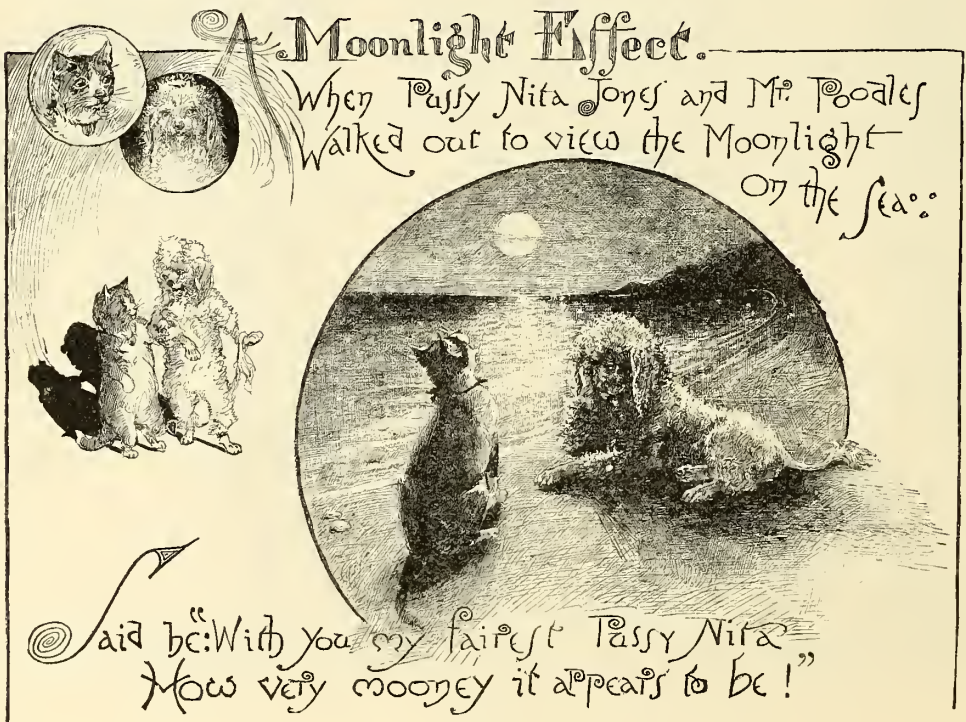 A Moonlight Effect.
When Pussy Nita Jones and Mr. Poodles
Walked out to view the Moonlight
On the Sea:
Said he: "With you my fairest Pussy Nita
How very mooney it appears to be!"